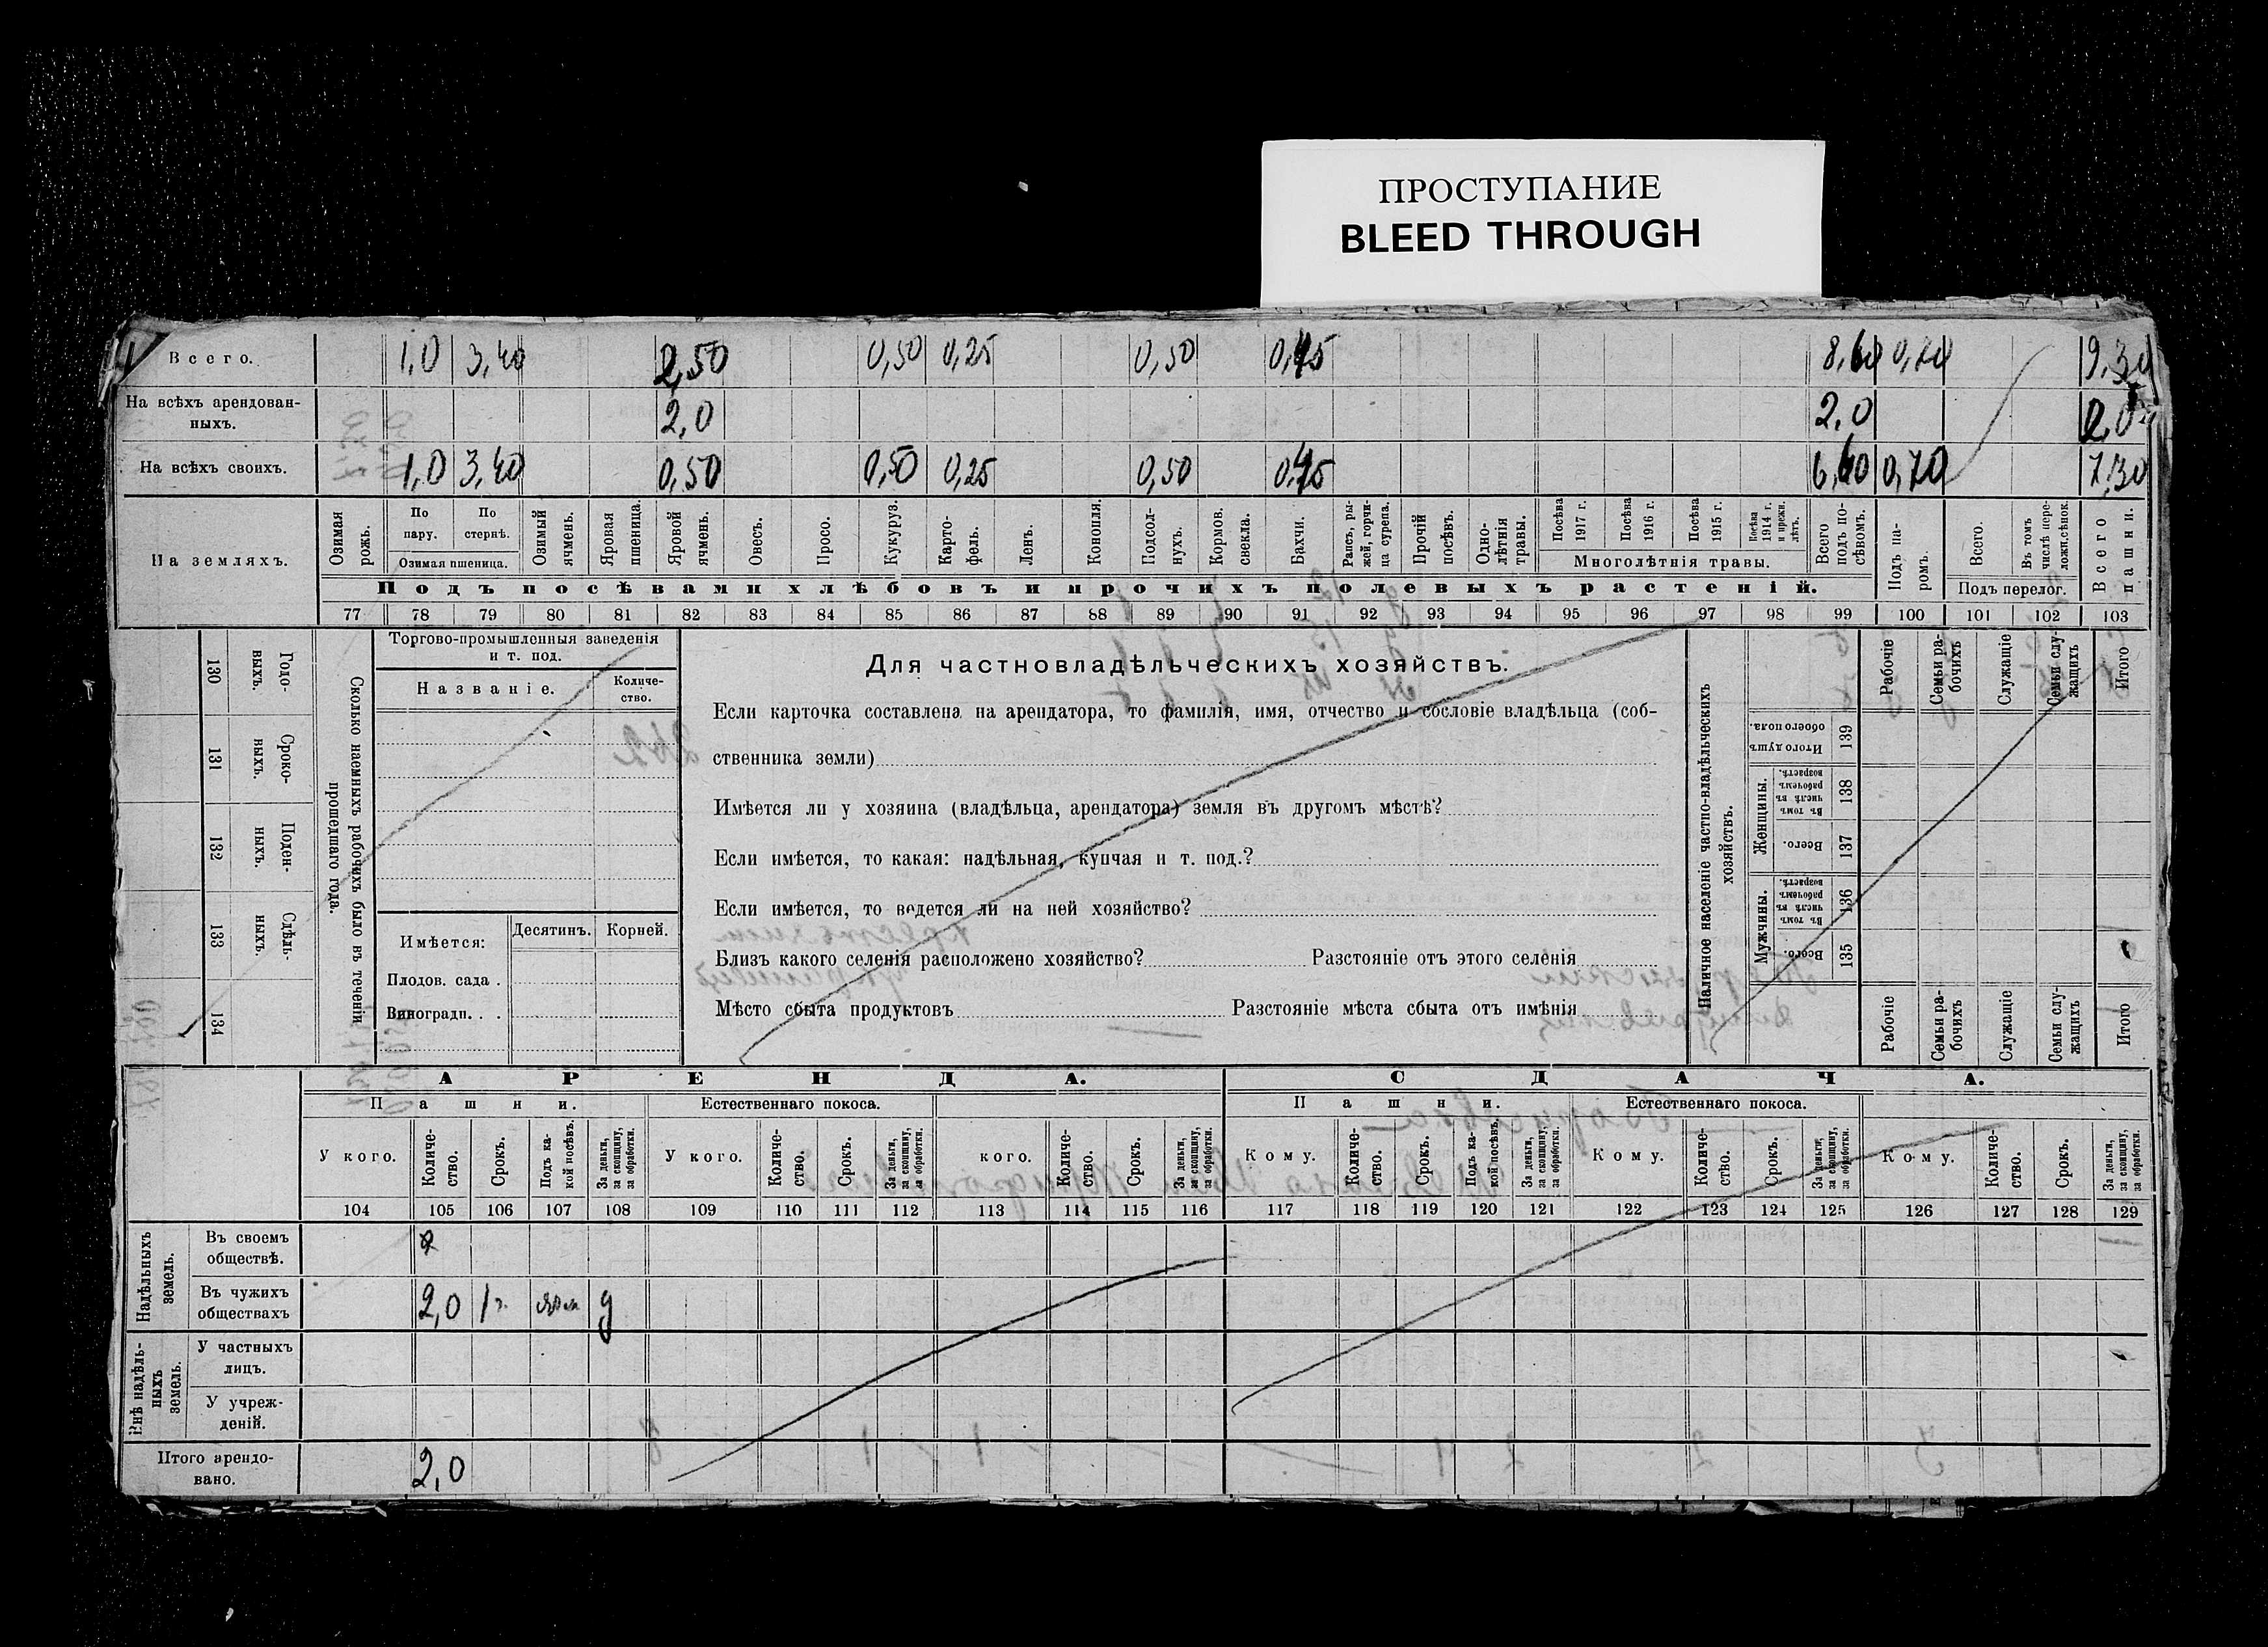 ПРОСТУПАНИЕ
BLEED THROUGH
Всего. 1,0 3,40 2,50 0,50 0,25 0,50 8,60 9,30
На всѣхъ арендован-
ныхъ. 2,0 2,0 2,0
На всѣхъ своихъ. 1,0 3,40 0,50 0,50 0,25 0,50 6,60 0,70 7,30
На земляхъ.
Озимая рожь.
По пару.
По стернѣ.
Озимая пшеница.
Озимый ячмень.
Яровая пшеница.
Яровой ячмень.
Овесъ.
Просо.
Кукуруз.
Карто-
фель.
Ленъ.
Конопля.
Подсол-
нухъ.
Кормов. свекла.
Бахчи.
Рапсъ, ры-
жей, горчи-
ца сурепа.
Прочій посѣвъ.
Одно-
лѣтнія травы.
Посѣва 1917 г.
Посѣва 1916 г.
Посѣва 1915 г.
Посѣва 1914 г. и прежн. лѣтъ.
Многолѣтнія травы.
Всего подъ по-
сѣвомъ.
Подъ па-
ромъ.
Всего.
Въ томъ числѣ пере-
ложн. сѣнок.
Подъ перелог.
Всего пашни.
Подъ посѣвами хлѣбовъ и прочихъ полевыхъ растеній.
77 78 79 80 81 82 83 84 85 86 87 88 89 90 91 92 93 94 95 96 97 98 99 100 101 102 103
130 Годо-
выхъ.
131 Сроко-
ныхъ.
132 Поден-
ныхъ.
133 Сдѣль-
ныхъ.
134
Сколько наемныхъ рабочихъ было въ теченіи
прошедшаго года.
Торгово-промышленныя заведенія
и т. под.
Названіе.
Количе-
ство.
Имѣется:
Десятинъ. Корней.
Плодов. сада .
Виноградн. . .
Для частновладѣльческихъ хозяйствъ.
Если карточка составлена на арендатора, то фамилія, имя, отчество и сословіе владѣльца (соб-
ственника земли)
Имѣется ли у хозяина (владѣльца, арендатора) земля въ другомъ мѣстѣ?
Если имѣется, то какая: надѣльная, купчая и т. под.?
Если имѣется, то ведется ли на ней хозяйство?
Близъ какого селенія расположено хозяйство? Разстояніе отъ этого селенія
Мѣсто сбыта продуктовъ Разстояніе мѣста сбыта отъ имѣнія
Наличное населеніе частно-владѣльческихъ
хозяйствъ.
Рабочіе
Семьи ра-
бочихъ
Служащіе
Семьи слу-
жащихъ
Итого
Итого душъ обоего пола. 139
Женщины.
Въ томъ числѣ въ рабочемъ возрастѣ. 138
Всего. 137
Мужчины.
Въ томъ числѣ въ рабочемъ возрастѣ. 136
Всего. 135
Рабочіе
Семьи ра-
бочихъ
Служащіе
Семьи слу-
жащихъ
Итого
АРЕНДА. СДАЧА.
Пашни. Естественнаго покоса. Пашни. Естественнаго покоса.
У кого.
Количе-
ство.
Срокъ.
Подъ ка-
кой посѣвъ.
За деньги,
за скопщину,
за обработки.
У кого.
Количе-
ство.
Срокъ.
За деньги,
за скопщину,
за обработки.
кого.
Количе-
ство.
Срокъ.
За деньги,
за скопщину,
за обработки.
Кому.
Количе-
ство.
Срокъ.
Подъ ка-
кой посѣвъ.
За деньги,
за скопщину,
за обработки.
Кому.
Количе-
ство.
Срокъ.
За деньги,
за скопщину,
за обработки.
Кому.
Количе-
ство.
Срокъ.
За деньги,
за скопщину,
за обработки.
104 105 106 107 108 109 110 111 112 113 114 115 116 117 118 119 120 121 122 123 124 125 126 127 128 129
Надѣльныхъ
земель.
Въ своемъ
обществѣ.
Въ чужихъ
обществахъ 2,0 1 г. д
Внѣ надѣль-
ныхъ
земель.
У частныхъ
лицъ.
У учреж-
деній.
Итого арендо-
вано. 2,0